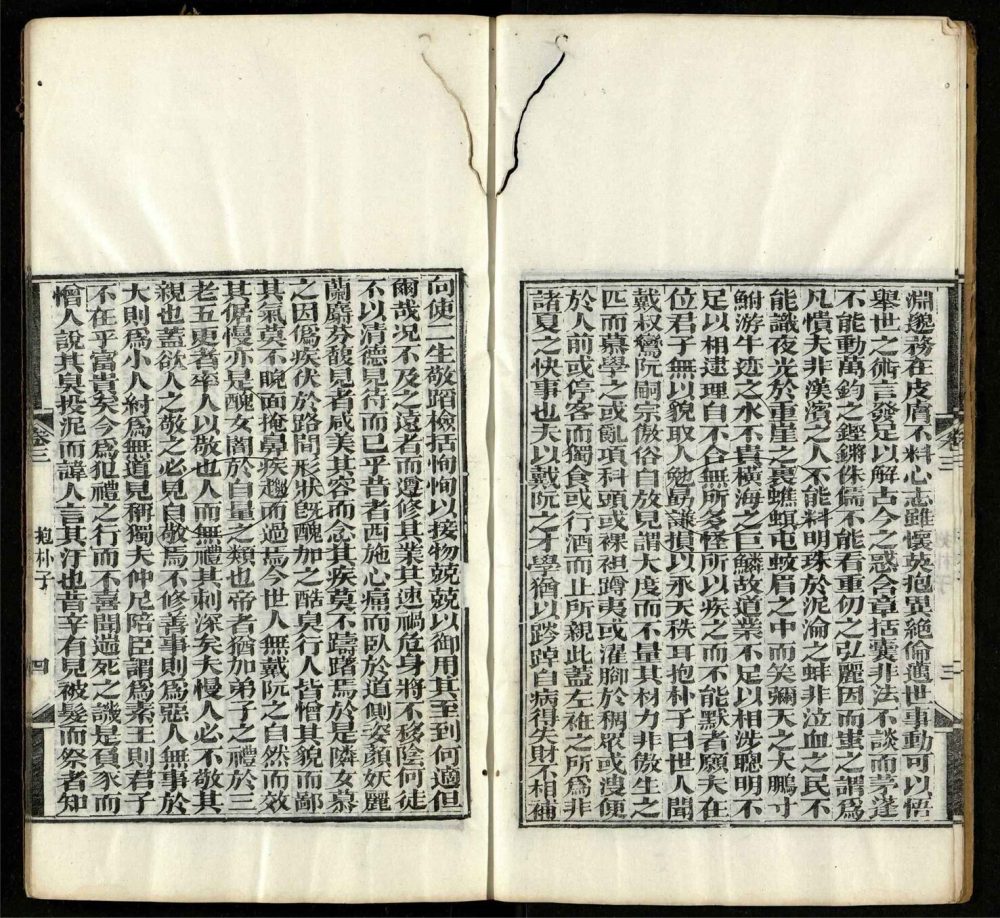 淵邈務在皮膚不料心志雖懷英抱異絕倫邁世事動可以悟
舉世之術言發足以解古今之惑含章括囊非法不談而茅蓬
不能動萬鈞之鏗鏘侏儒不能看重仞之弘麗因而蚩之謂爲
凡憒夫非漢濱之人不能料明珠於泥淪之蚌非泣血之民不
能識夜光於重崖之裏蟭螟屯蚊眉之中而笑彌天之大鵬寸
鮒游牛迹之水不貴橫海之巨鱗故道業不足以相涉聰明不
足以相逮理自不合無所多怪所以疾之而不能默者願夫在
位君子無以貌取人勉勗謙損以永天秩耳抱朴子曰世人聞
戴叔鸞阮嗣宗傲俗自放見謂大度而不量其材力非傲生之
匹而慕學之或亂項科頭或裸袒蹲夷或濯腳於稠眾或溲便
於人前或停客而獨食或行酒而止所親此蓋左衽之所爲非
諸夏之快事也夫以戴阮之才學猶以踸踔自病得失財不相補
向使二生敬蹈檢括恂恂以接物兢兢以御用其至到何適但
爾哉況不及之遠者而遵修其業其速禍危身將不移陰何徒
不以清德見待而已乎昔者西施心痛而臥於道側姿顏妖麗
蘭麝芬馥見者咸美其容而念其疾莫不躊躇焉於是隣女慕
之因僞疾伏於路間形狀既醜加之酷臭行人皆憎其貌而鄙
其氣莫不睨面掩鼻疾趨而過焉今世人無戴阮之自然而效
其倨慢亦是醜女闇於自量之類也帝者猶加弟子之禮於三
老五更者率人以敬也人而無禮其刺深矣夫慢人必不敬其
親也蓋欲人之敬之必見自敬焉不修善事則爲惡人無事於
大則爲小人紂爲無道見稱獨夫仲尼陪臣謂爲素王則君子
不在乎富貴矣今爲犯禮之行而不喜聞遄死之譏是負豕而
憎人說其臭投泥而諱人言其汙也昔辛有見被髮而祭者知
卷三
抱朴子
四
卷三
三